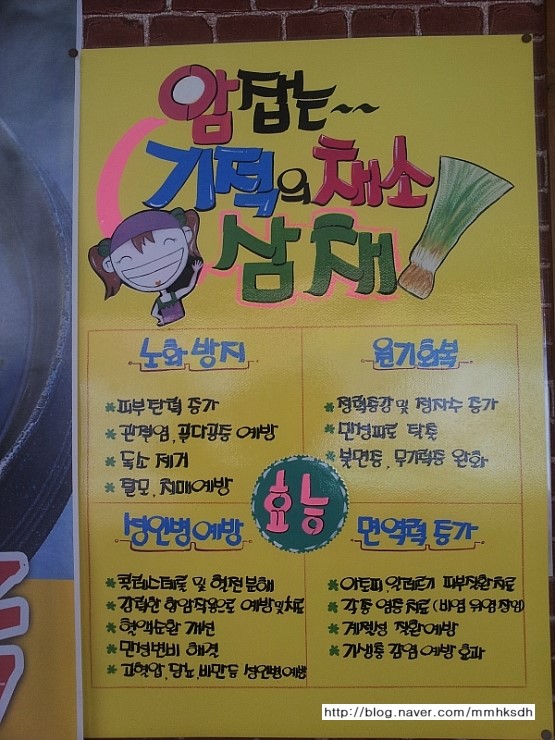 암잡는~~
기적의 채소
삼채
노화 방지
*피부탄력 증가
*관절염, 골다공증 예방
*독소 제거
*탈모, 치매예방
원기회복
*정력증강 및 정자수 증가
*만성피로 탁월
*불면증, 무기력증 완화
효능
성인병예방
*콜레스테롤 및 혈전 분해
*강력한 항암작용으로 예방 및 치료
*혈액순환 개선
*만성변비 해결
*고혈압, 당뇨, 비만등 성인병예방
면역력 증가
*아토피, 알레르기 피부질환 치료
*각종 염증 치료 (비염 위염 장염)
*계절성 질환예방
*기생충 감염 예방 효과
http://blog.naver.com/mmhksdh